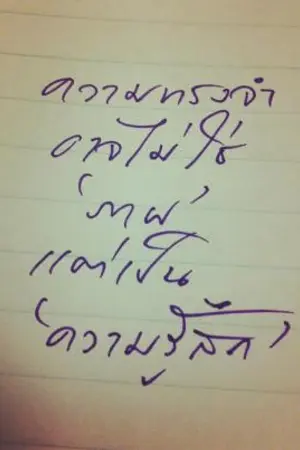 ความทรงจำ
อาจไม่ใช่
'ภาพ'
แต่เป็น
'ความรู้สึก'